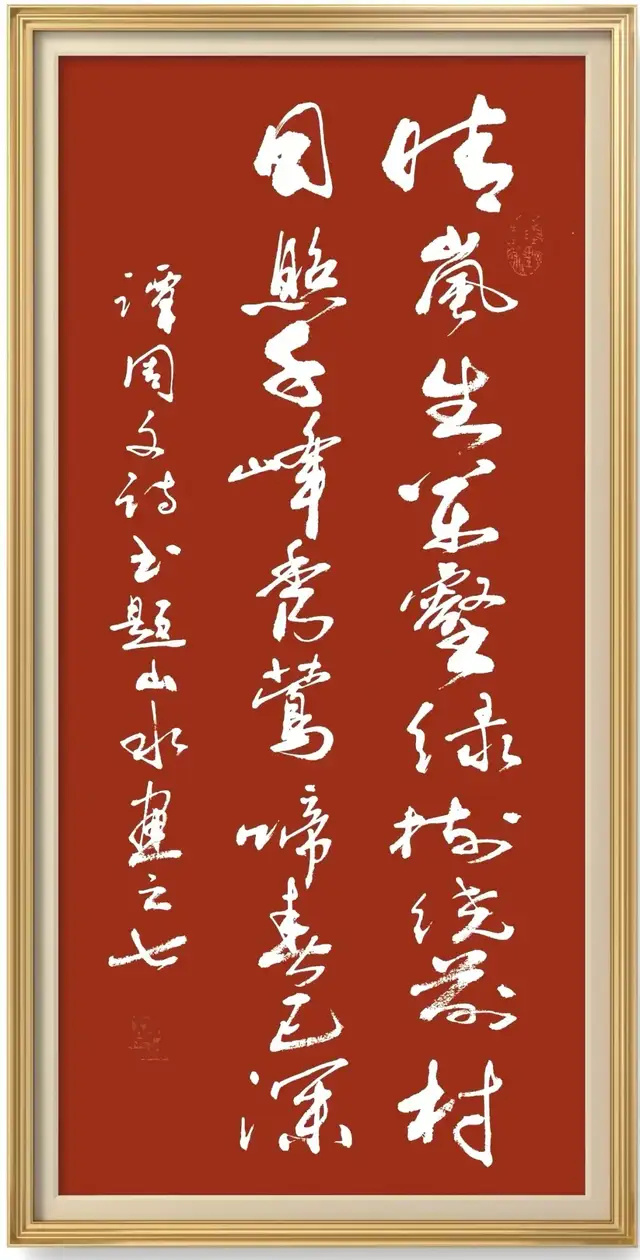 晴岚生万壑绿树绕前村
日照千峰秀莺啼春已深
谭周文诗书题山水画之七